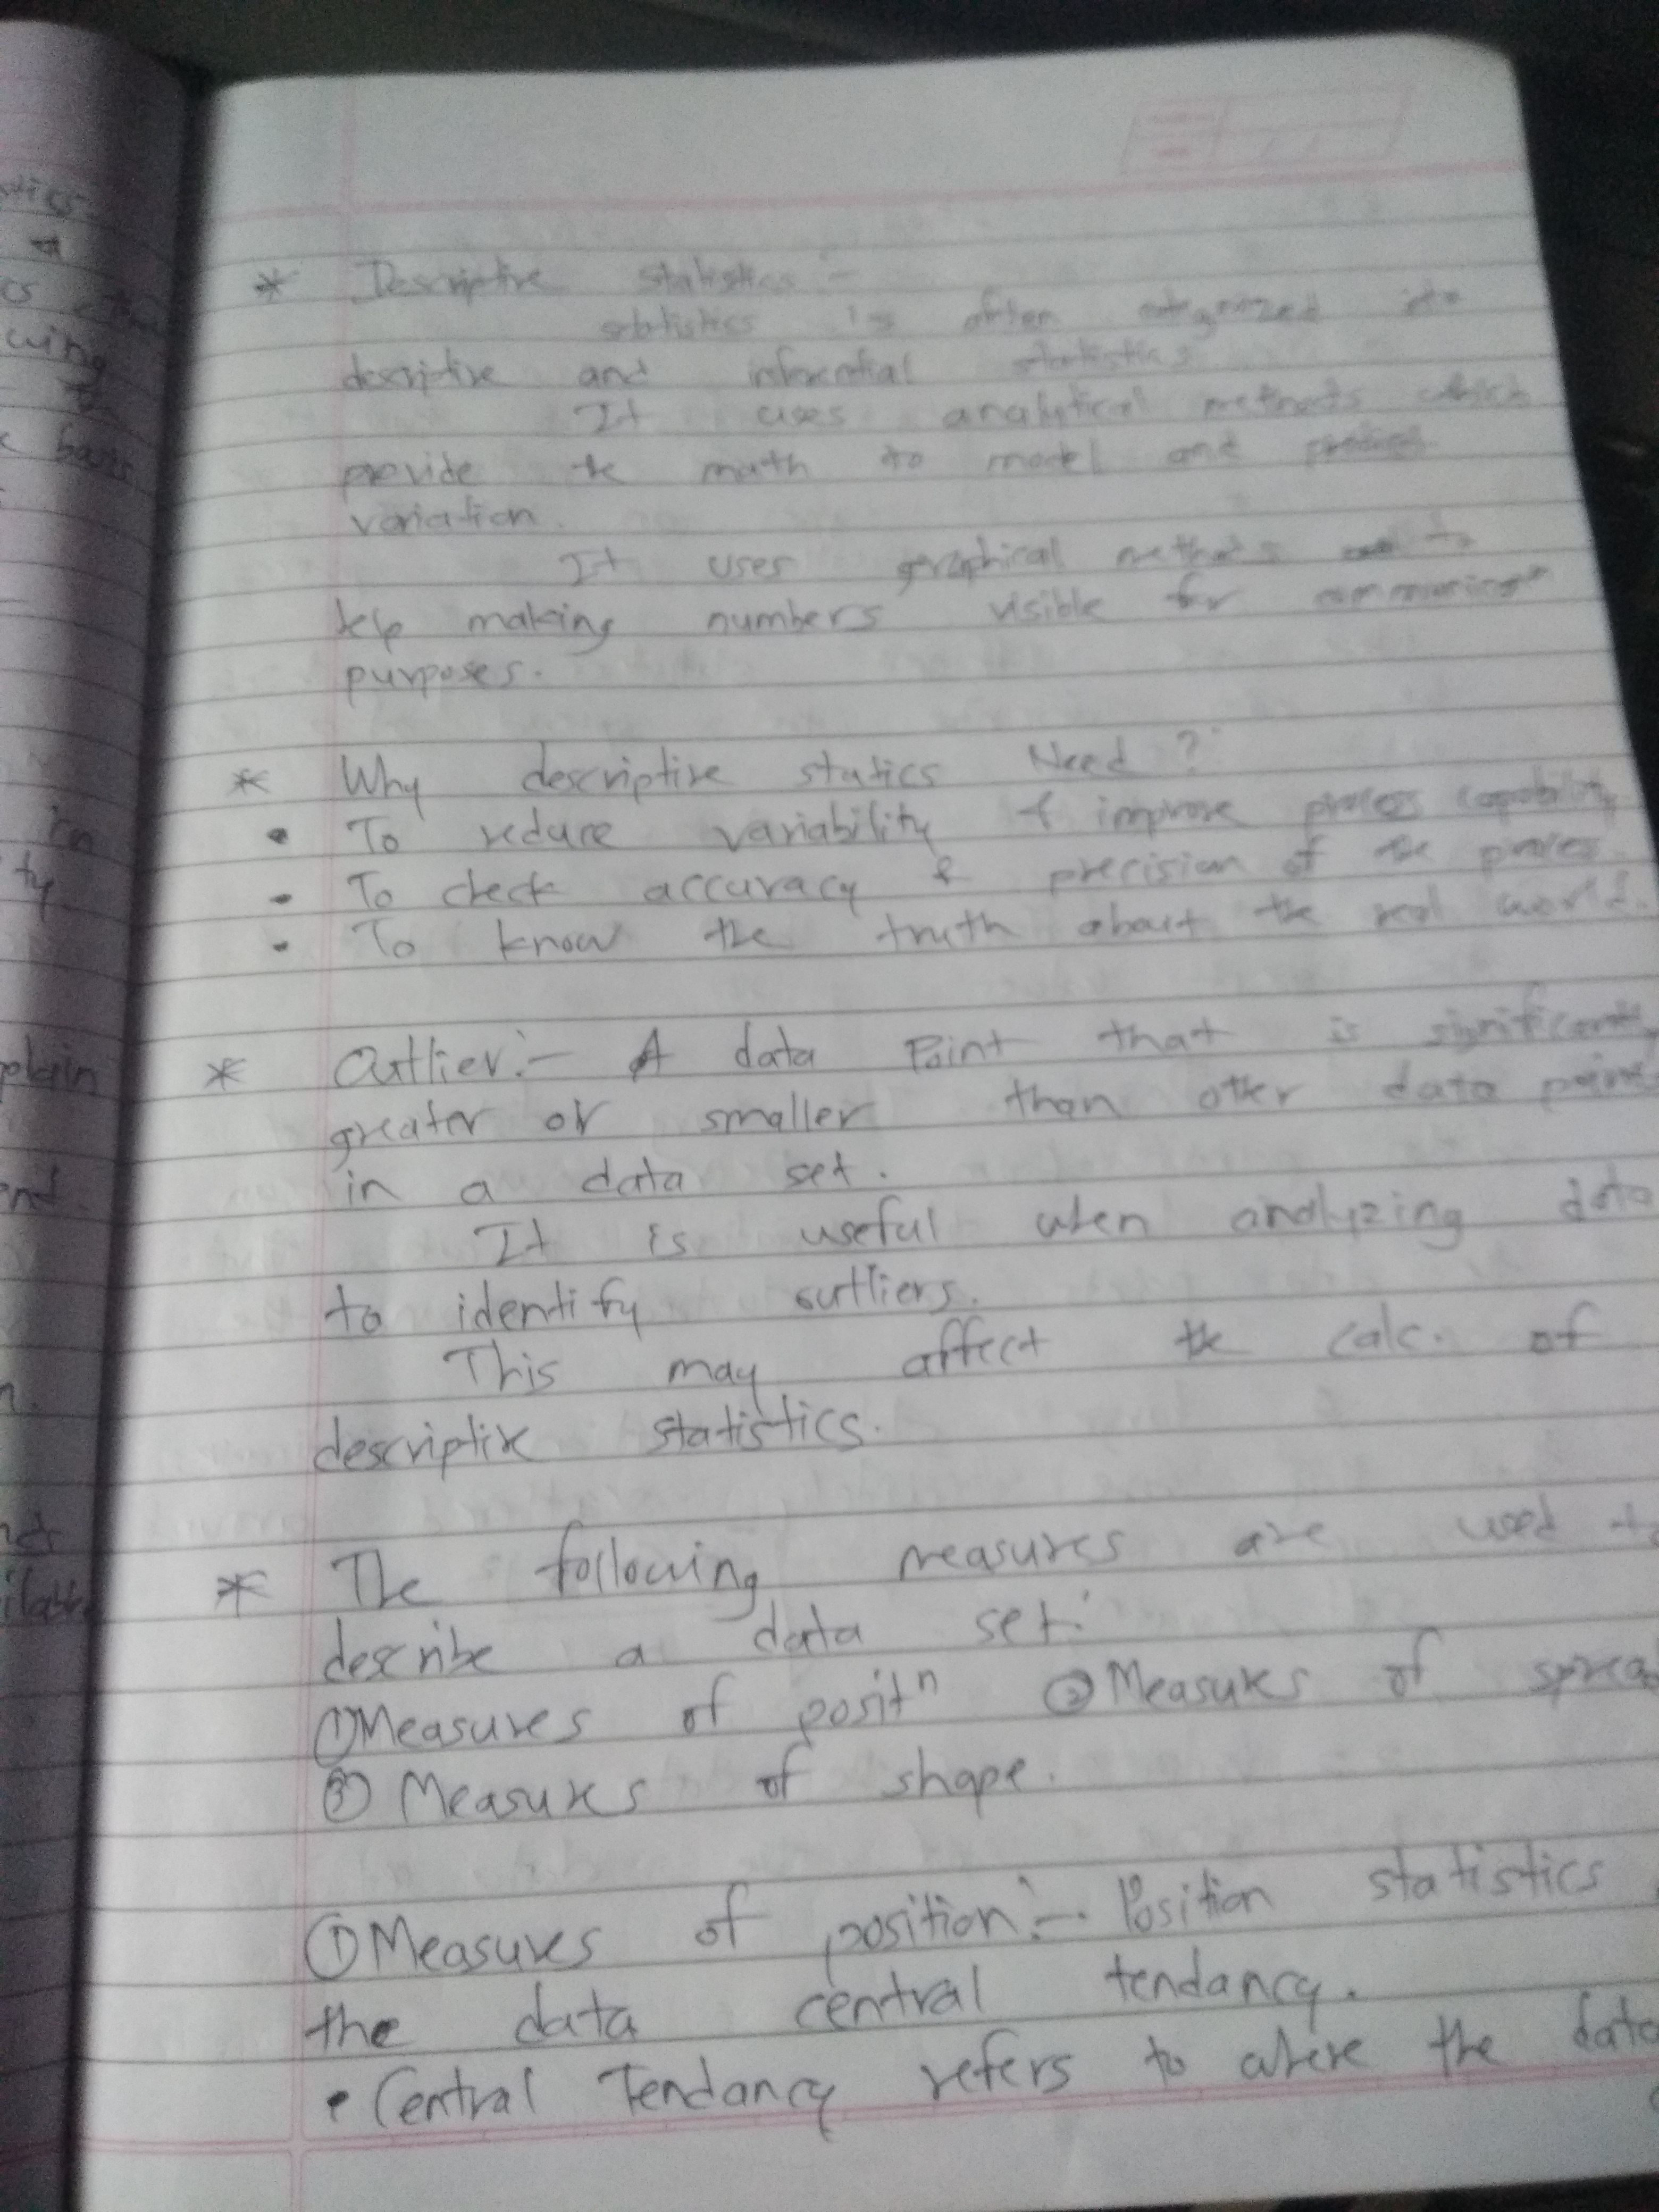 * Descriptive statistics :-
statistics is often categorized into
descriptive and inferential statistics
It uses analytical methods which
provide the math to model and
variation.
It uses graphical methods to
help making numbers visible for
purposes.
* Why descriptive statics Need ?
• To reduce variability & improve process capability
• To check accuracy & precision of the process.
• To know the truth about the real world.
* Outlier :- A data Point that is significantly
greater or smaller than other data points
in a data set.
It is useful when analyzing data
to identify outliers.
This may affect the calc. of
descriptive statistics.
* The following measures are used to
describe a data set:
① Measures of positn ② Measures of sprea
③ Measures of shape.
① Measures of position :- Position statistics
the data central tendancy.
• Central Tendancy refers to where the data